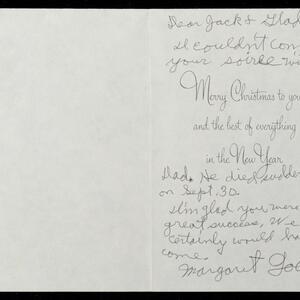 Dear Jack & Glad
I couldn't com
your soirée
Merry Christmas to you
and the best of everything
in the New Year
Dad. He died sudde
on Sept. 30.
I'm glad you were
great success. We
certainly would ha
come.
Margaret